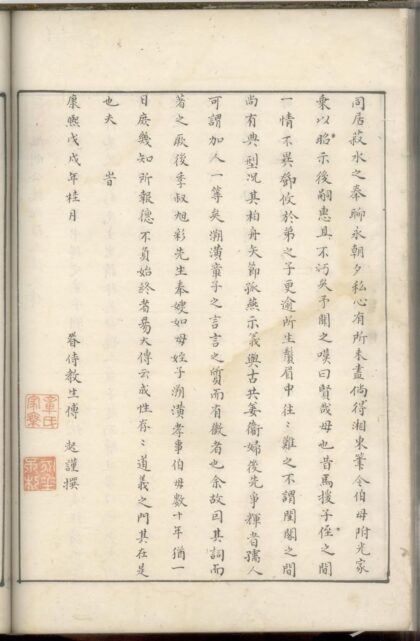 同居菽水之奉聊永朝夕私心有所未盡倘得湘東筆令伯母附光家
乘以昭示後嗣惠且不朽矣予聞之嘆曰賢哉母也昔馬援子侄之間
一情不異鄧攸於弟之子更逾所生鬚眉中往〻難之不謂閨閣之間
尚有典型况其柏舟矢節孤燕示義與古共姜衞婦後先爭輝者孺人
可謂加人一等矣溯潢童子之言言之質而有徵者也余故因其詞而
著之厥後季叔旭彩先生奉嫂如母姪子溯潢孝事伯母數十年猶一
日庶幾知所報德不負始終者易大傳云成性存〻道義之門其在是
也夫 旹
康熙戊戌年桂月
眷侍教生傅 起謹撰